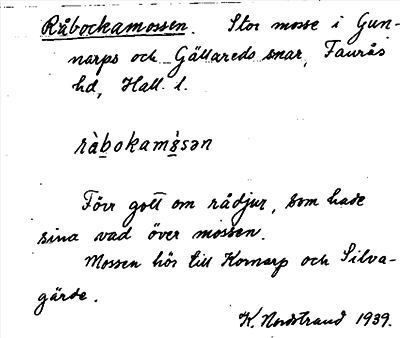 Råbockamossen. Stor mosse i Gun-
narps och Gällareds snar, Faurås
hd, Hall. l.
ràbokamòsən
Förr gott om rådjur, som hade
sina vad över mossen.
Mossen hör till Kornarp och Silva-
gärde.
K. Nordstrand 1939.